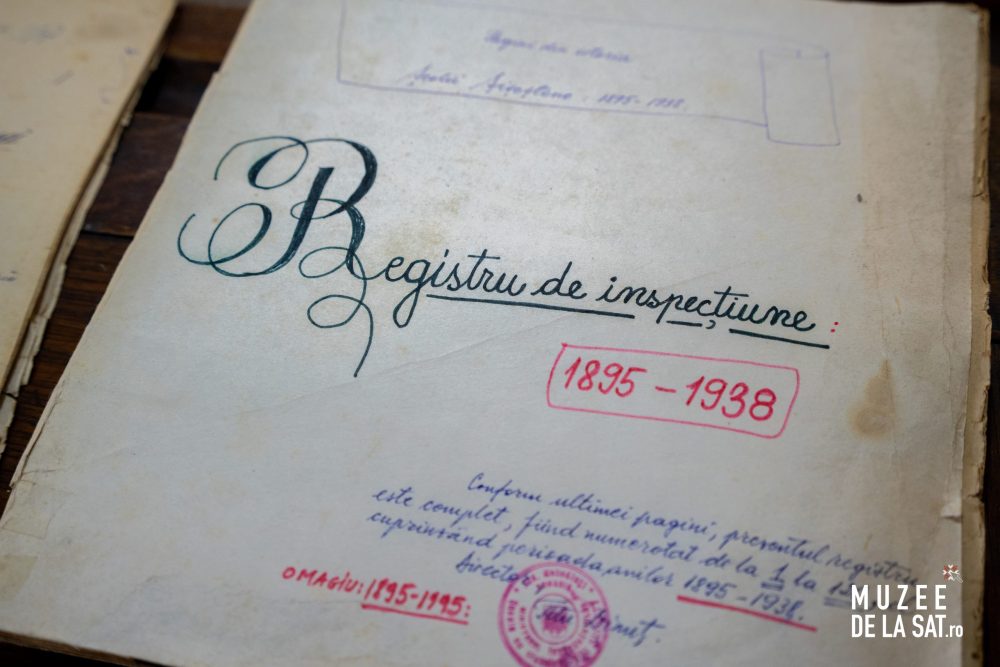 Pagini din istoria
Școlii 1895-1938.
Registru de inspecțiune:
1895-1938
Conform ultimei pagini, prezentul registru
este complet, fiind numerotat de la 1 la
cuprinzând perioada anilor 1895-1938.
Director
OMAGIU: 1895-1995:
MUZEE
DE LA SAT.ro